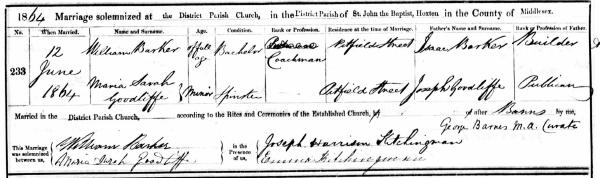 1864 Marriage solemnized at the District Parish Church, in the District Parish of St. John the Baptist, Hoxton in the County of Middlesex.
No. When Married. Name and Surname. Age. Condition. Rank or Profession. Residence at the time of Marriage. Father's Name and Surname. Rank or Profession of Father.
12 William Barker of full age Bachelor Coachman Pitfield Street Isaac Barker Builder
233 June
1864 Maria Sarah Goodliffe Minor Spinster Pitfield Street Joseph Goodliffe Publican
Married in the District Parish Church, according to the Rites and Ceremonies of the Established Church, by after Banns by me,
George Barnes M.A. Curate
This Marriage was solemnized between us, William Barker in the Presence of us, Joseph Harrison Kitchingman
Maria Sarah Goodliffe Emma Kitchingman